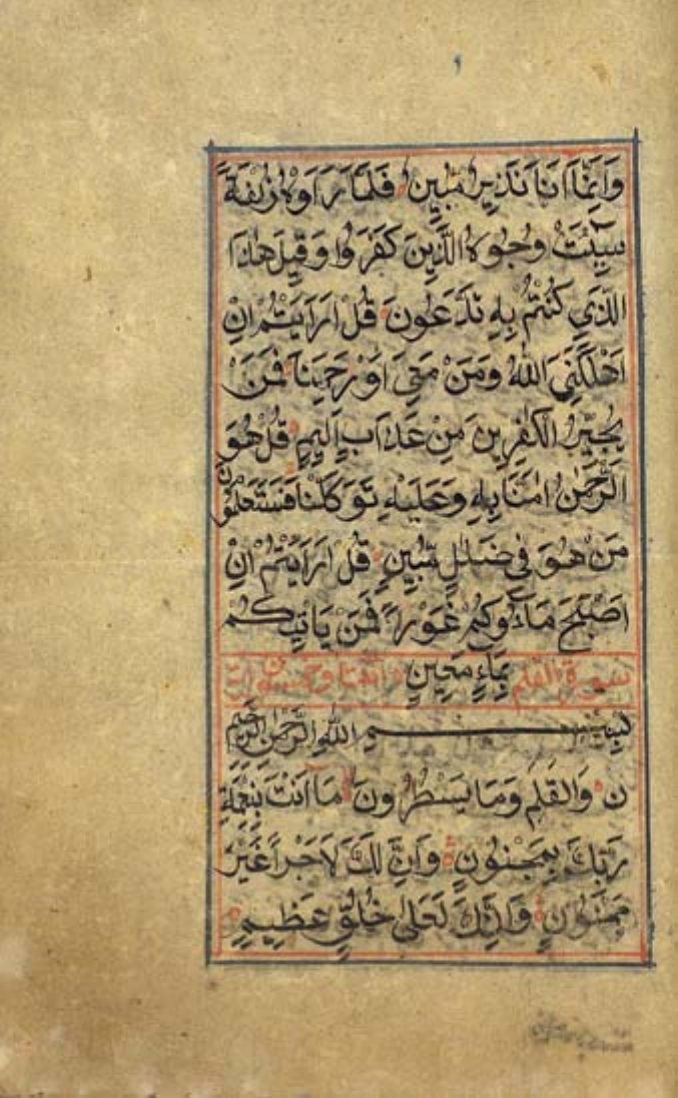 وَاِنَّمَا اَنَا نَذِيرٌ مُبِينٌ فَلَمَّا رَاَوْهُ زُلْفَةً
سِيْئَتْ وُجُوهُ الَّذِينَ كَفَرُوا وَقِيلَ هٰذَا
الَّذِي كُنْتُمْ بِهِ تَدَّعُونَ قُلْ اَرَاَيْتُمْ اِنْ
اَهْلَكَنِيَ اللّٰهُ وَمَنْ مَعِيَ اَوْ رَحِمَنَا فَمَنْ
يُجِيرُ الْكٰفِرِينَ مِنْ عَذَابٍ اَلِيمٍ قُلْ هُوَ
الرَّحْمٰنُ اٰمَنَّا بِهِ وَعَلَيْهِ تَوَكَّلْنَا فَسَتَعْلَمُونَ
مَنْ هُوَ فِي ضَلٰلٍ مُبِينٍ قُلْ اَرَاَيْتُمْ اِنْ
اَصْبَحَ مَاؤُكُمْ غَوْرًا فَمَنْ يَاْتِيكُمْ
بِمَاءٍ مَعِينٍ
سورة القلم
بِسْمِ اللّٰهِ الرَّحْمٰنِ الرَّحِيمِ
ن وَالْقَلَمِ وَمَا يَسْطُرُونَ مَا اَنْتَ بِنِعْمَةِ
رَبِّكَ بِمَجْنُونٍ وَاِنَّ لَكَ لَاَجْرًا غَيْرَ
مَمْنُونٍ وَاِنَّكَ لَعَلٰى خُلُقٍ عَظِيمٍ